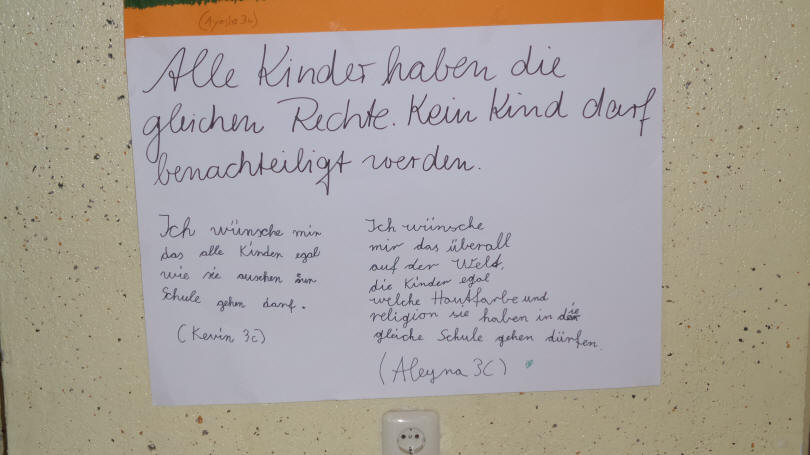 Alle Kinder haben die
gleichen Rechte. Kein Kind darf
benachteiligt werden.
Ich wünsche mir
das alle Kinder egal
wie sie ausehen zur
Schule gehen darf.
(Kevin 3c)
Ich wünsche
mir das überall
auf der Welt,
die Kinder egal
welche Hautfarbe und
religion sie haben in die
gleiche Schule gehen dürfen.
(Aleyna 3C)